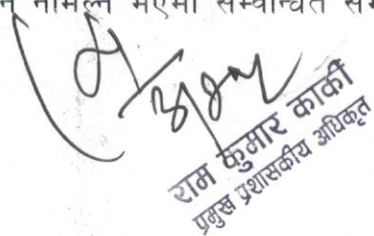 नमिल्ने भएमा सम्वन्धित
राम कुमार कार्की
प्रमुख प्रशासकीय अधिकृत